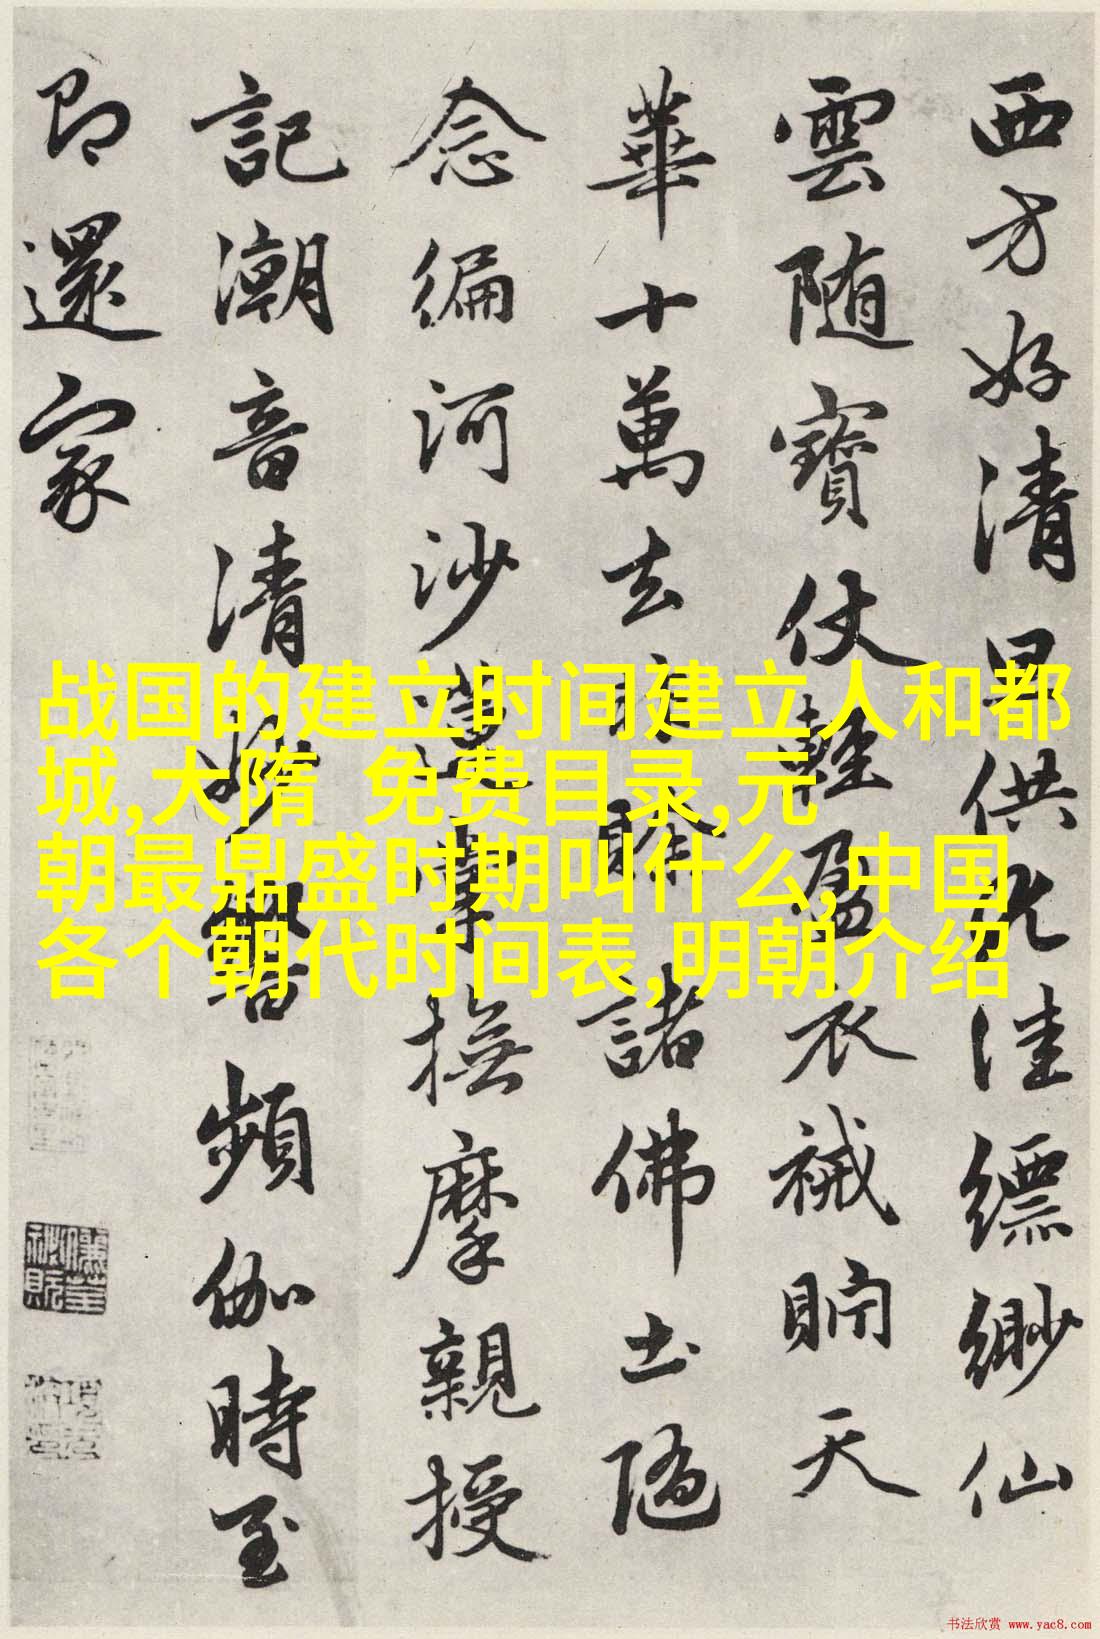 西方好清旦供尤佳縹緲仙
雲随寶仗輕盈衣裓貯天
華十萬去諸佛土隨
念徧河沙掌撫摩親授
記潮音清妙響頻伽時至
即還家
战国的建立时间建立人和都
城,大隋 免费目录,元
朝最鼎盛时期叫什么,中国
各个朝代时间表,明朝介绍
书法欣赏 www.yac8.com